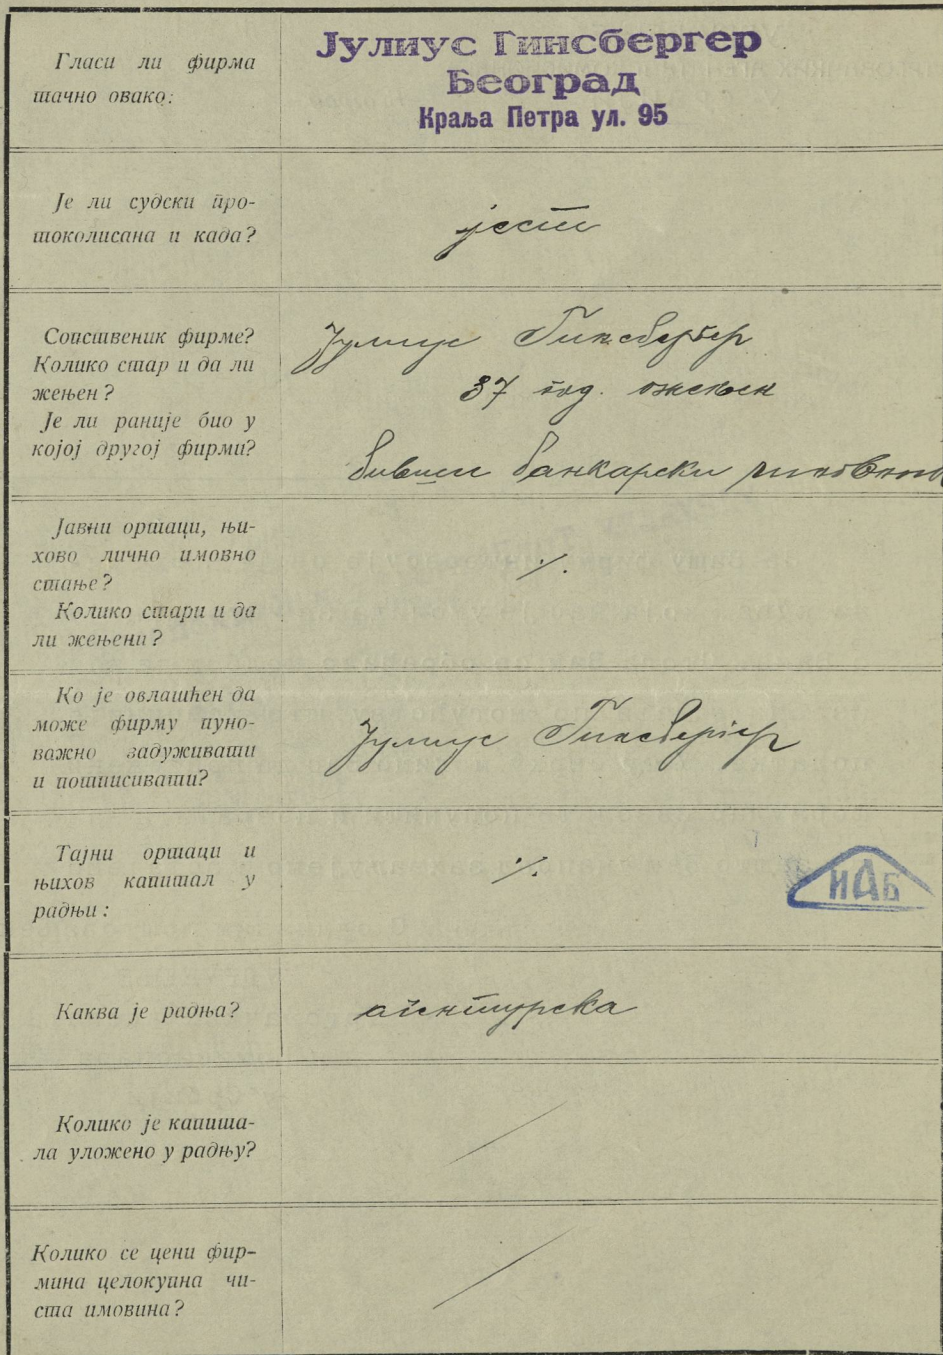 Гласи ли фирма
тачно овако:
Јулиус Гинсбергер
Београд
Краља Петра ул. 95
Је ли судски про-
токолисана и када?
јест
Сопственик фирме?
Колико стар и да ли
жењен?
Је ли раније био у
којој другој фирми?
Јулиус Гинсбергер
37 год. ожењен
бивши банкарски чиновник
Јавни ортаци, њи-
хово лично имовно
стање?
Колико стари и да
ли жењени?
·/.
Ко је овлашћен да
може фирму пуно-
важно задуживати
и потписивати?
Јулиус Гинсбергер
Тајни ортаци и
њихов капитал у
радњи:
·/.
ИАБ
Каква је радња?
агентурска
Колико је капита-
ла уложено у радњу?
/
Колико се цени фир-
мина целокупна чи-
ста имовина?
/